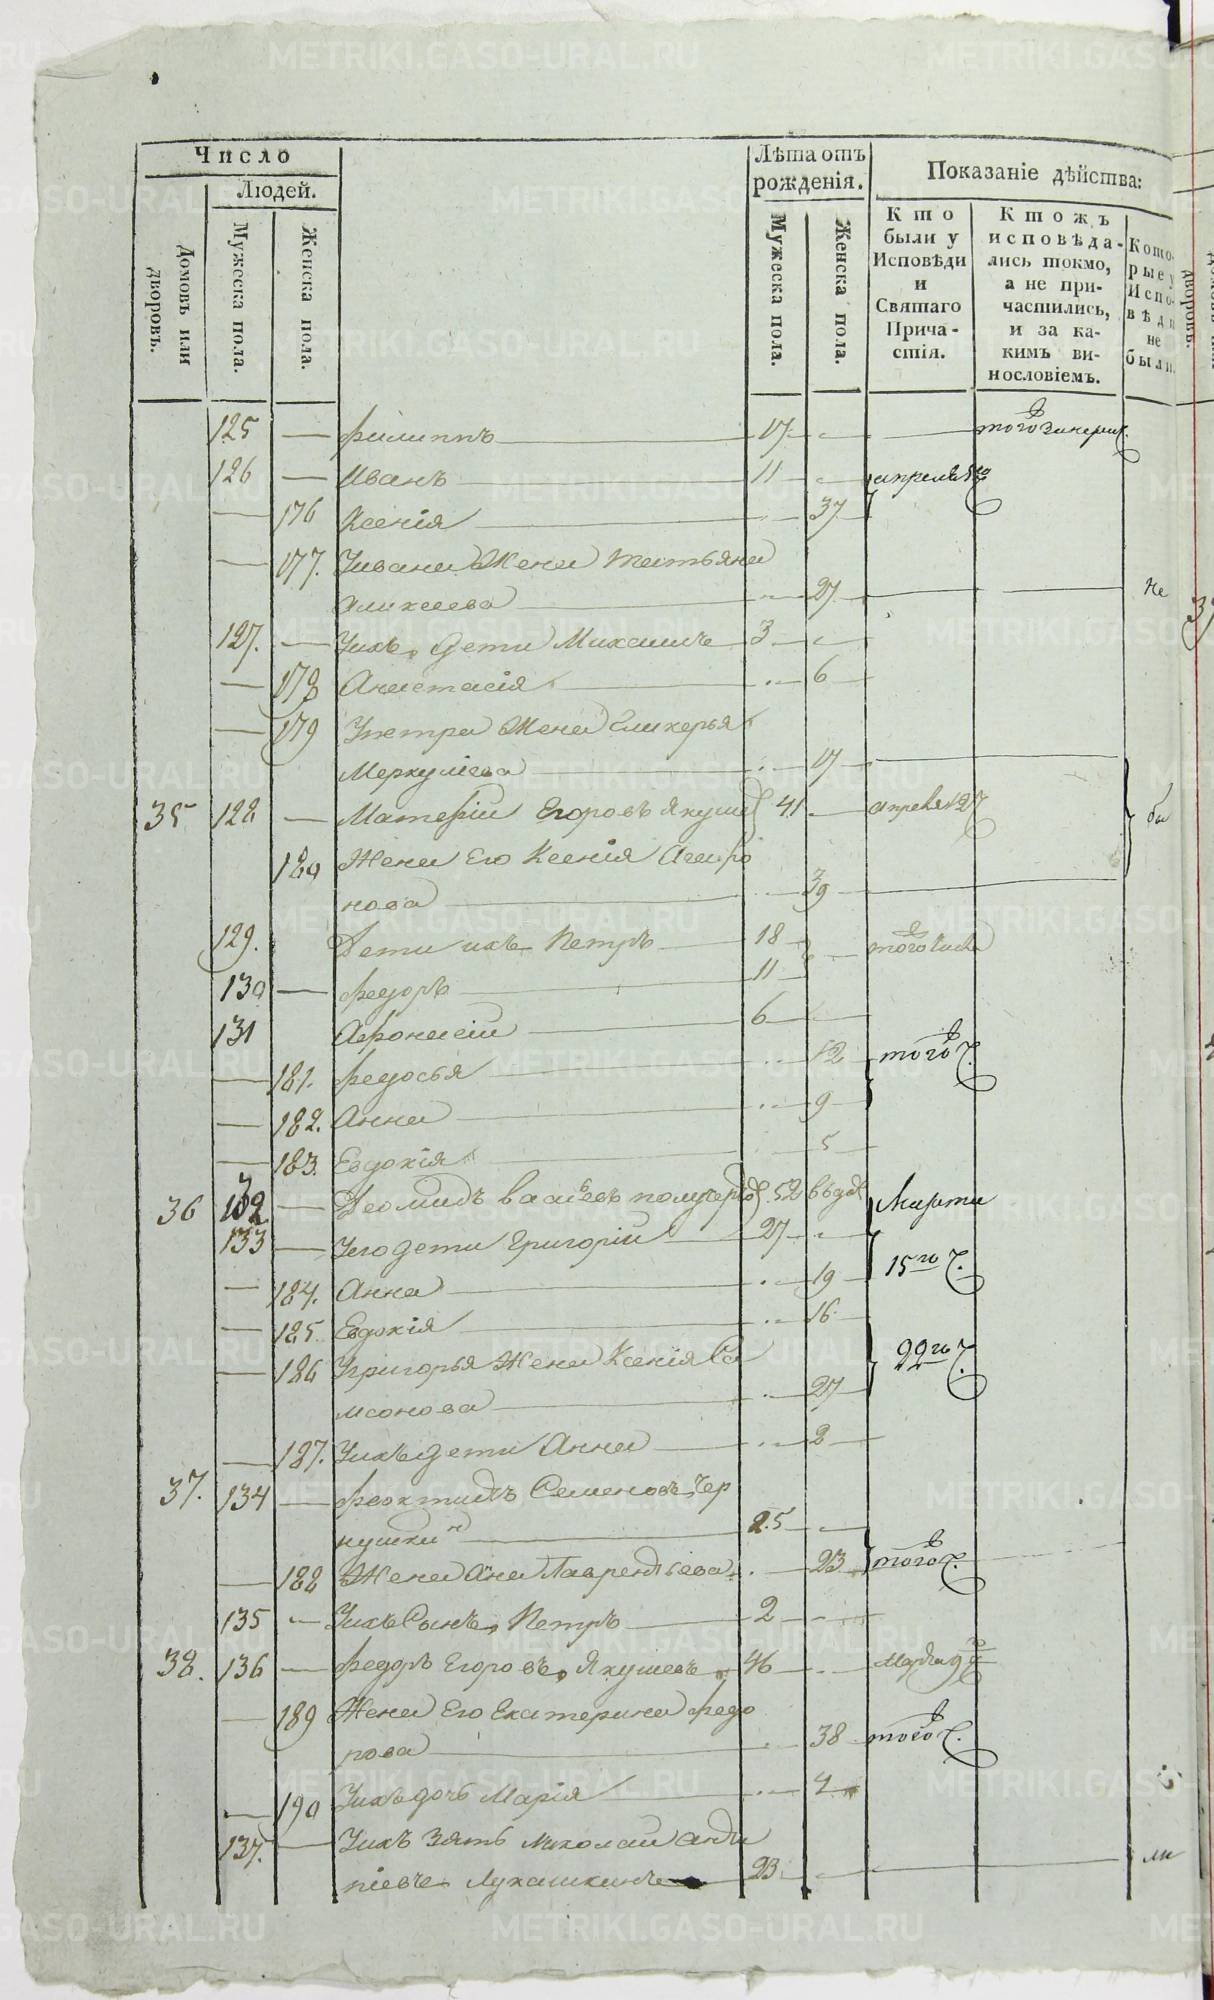 Число
Людей.
Домовъ или дворовъ.
Мужеска пола.
Женска пола.
Лѣта отъ рожденія.
Мужеска пола.
Женска пола.
Показаніе дѣйства:
Кто были у Исповѣди и Святаго Причастія.
Ктожъ исповѣдались токмо, а не причастились, и за какимъ винословіемъ.
Которые у Исповѣди не были.
125 — Филиппъ 17
126 — Иванъ 11 апреля
— 176 Ксенія 37
— 177. Уивана Жена Татьяна
Аликсеева 27 не
127. — Уихъ дети Михаилъ 3
— 178 Анастасія 6
— 179 Упетра Жена Гликерья
Меркулева 17
35 128 — Матвѣй Егоровъ Якушев 41 апреля бы
180 Жена Его Ксенія Агафо
нова 39
129. Дети ихъ Петръ 18 того
130 — Федоръ 11
131 Афонасій 6
— 181. Федосья 12 того ч.
— 182. Анна 9
— 183. Евдокія 5
36 132 — Деомидъ 52 вдов Марта
133 — Уего дети Григорій 27 15го ч.
— 184. Анна 19
— 185. Евдокія 16
— 186 Угригорья Жена Ксенія Са
мсонова 27 22го ч.
— 187. Уихъ дети Анна 2
37. 134 — Феоктистъ Семеновъ Чер
нушкин 25
— 188 Жена Анна Лаврентьева 23 того ч.
135 — Уихъ Сынъ Петръ 2
38. 136 — Федоръ Егоровъ Якушевъ 46 Марта 9го
— 189 Жена Его Екатерина Федо
рова 38 того ч.
— 190 Уихъ дочь Марія 4
137. — Уихъ Зять Николай
Лукашкинъ 23 ли
METRIKI.GASO-URAL.RU